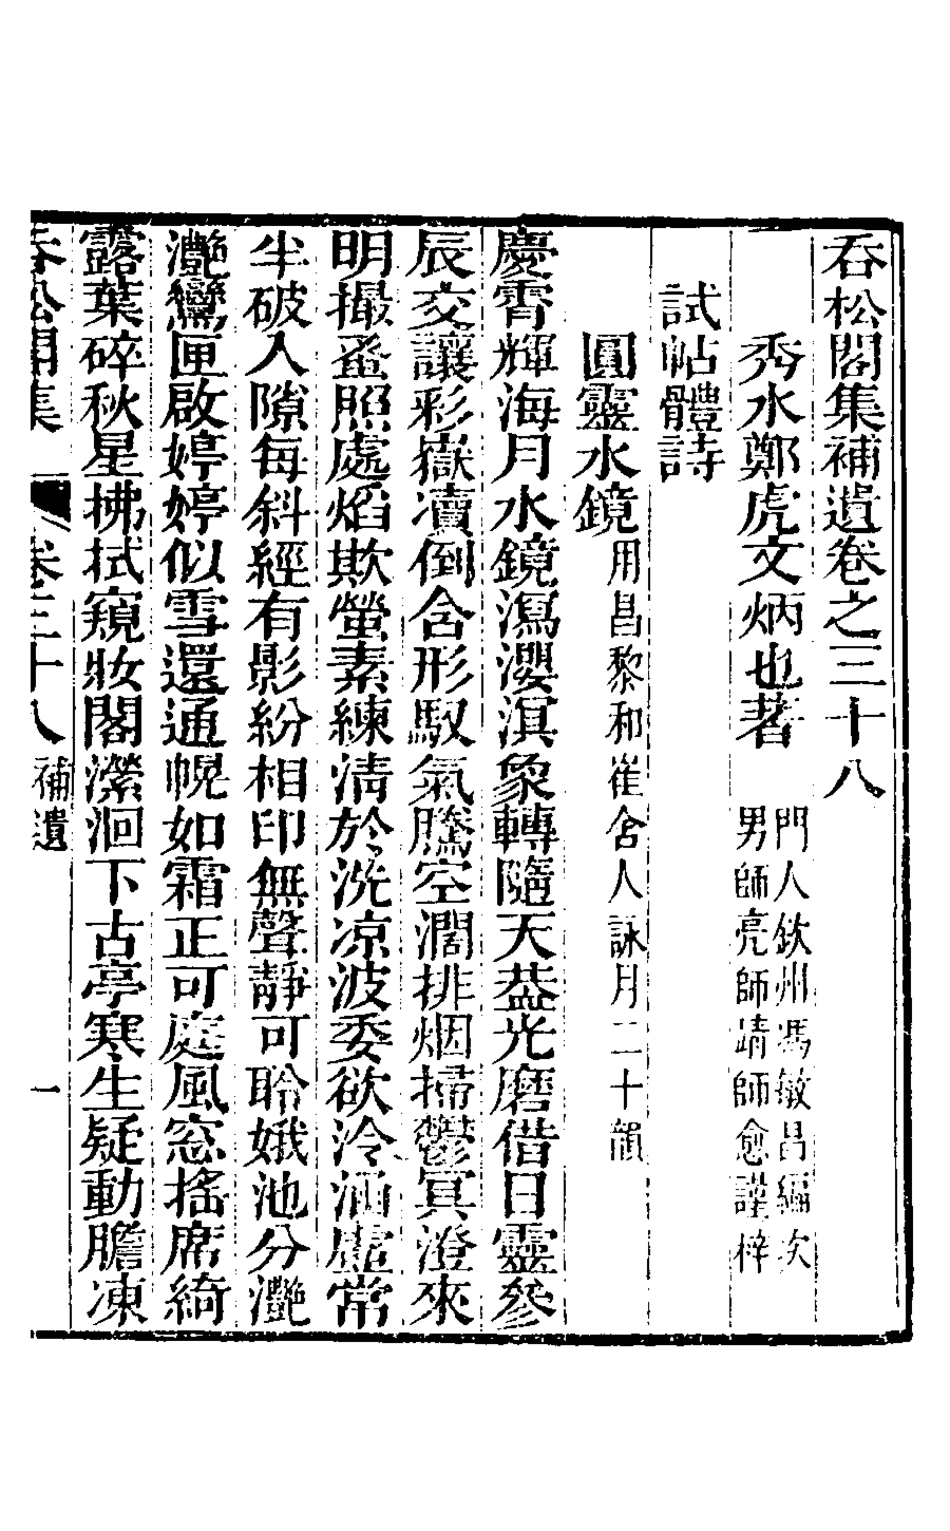 吞松閣集補遺卷之三十八
秀水鄭虎文炳也著
門人欽州馮敏昌編次
男師亮師靖師愈謹梓
試帖體詩
圓靈水鏡用昌黎和崔舍人詠月二十韻
慶霄輝海月水鏡瀉瀴溟象轉隨天葢光磨借日靈參
辰交讓彩嶽瀆倒含形馭氣騰空濶排烟掃鬱冥澄來
明撮蚤照處焰欺螢素練淸於洗凉波委欲泠涵虛常
半破入隙每斜經有影紛相印無聲靜可聆娥池分灔
灔鸞匣啟婷婷似雪還通幌如霜正可庭風窓搖席綺
露葉碎秋星拂拭窺妝閣瀠洄下古亭寒生疑動膽凍
吞松閣集
卷三十八補遺
一